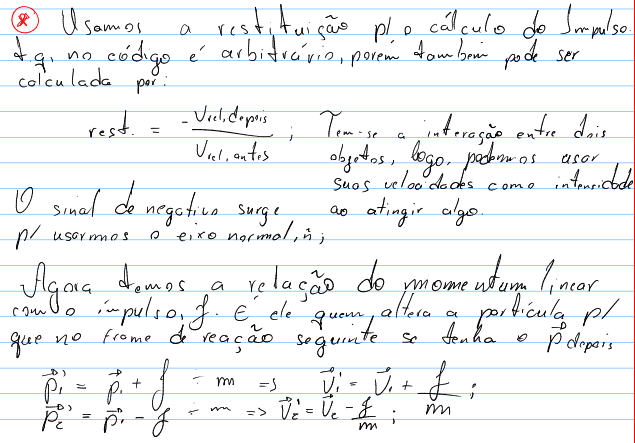 * Usamos a restituição p/ o cálculo do Impulso.
t.q. no código é arbitrário, porém também pode ser
calculada por:
rest. = -Vrel,depois / Vrel,antes ; Tem-se a interação entre dois
objetos, logo, podemos usar
suas velocidades como intensidade
ao atingir algo.
O sinal de negativo surge
p/ usarmos o eixo normal, n̂;
Agora temos a relação do momentum linear
com o impulso, J. É ele quem altera a partícula p/
que no frame de reação seguinte se tenha o p⃗ depois
p⃗₁' = p⃗₁ + J ÷ m => v⃗₁' = v⃗₁ + J/m ;
p⃗₂' = p⃗₁ - J ÷ m => v⃗₂' = v⃗₂ - J/m ;